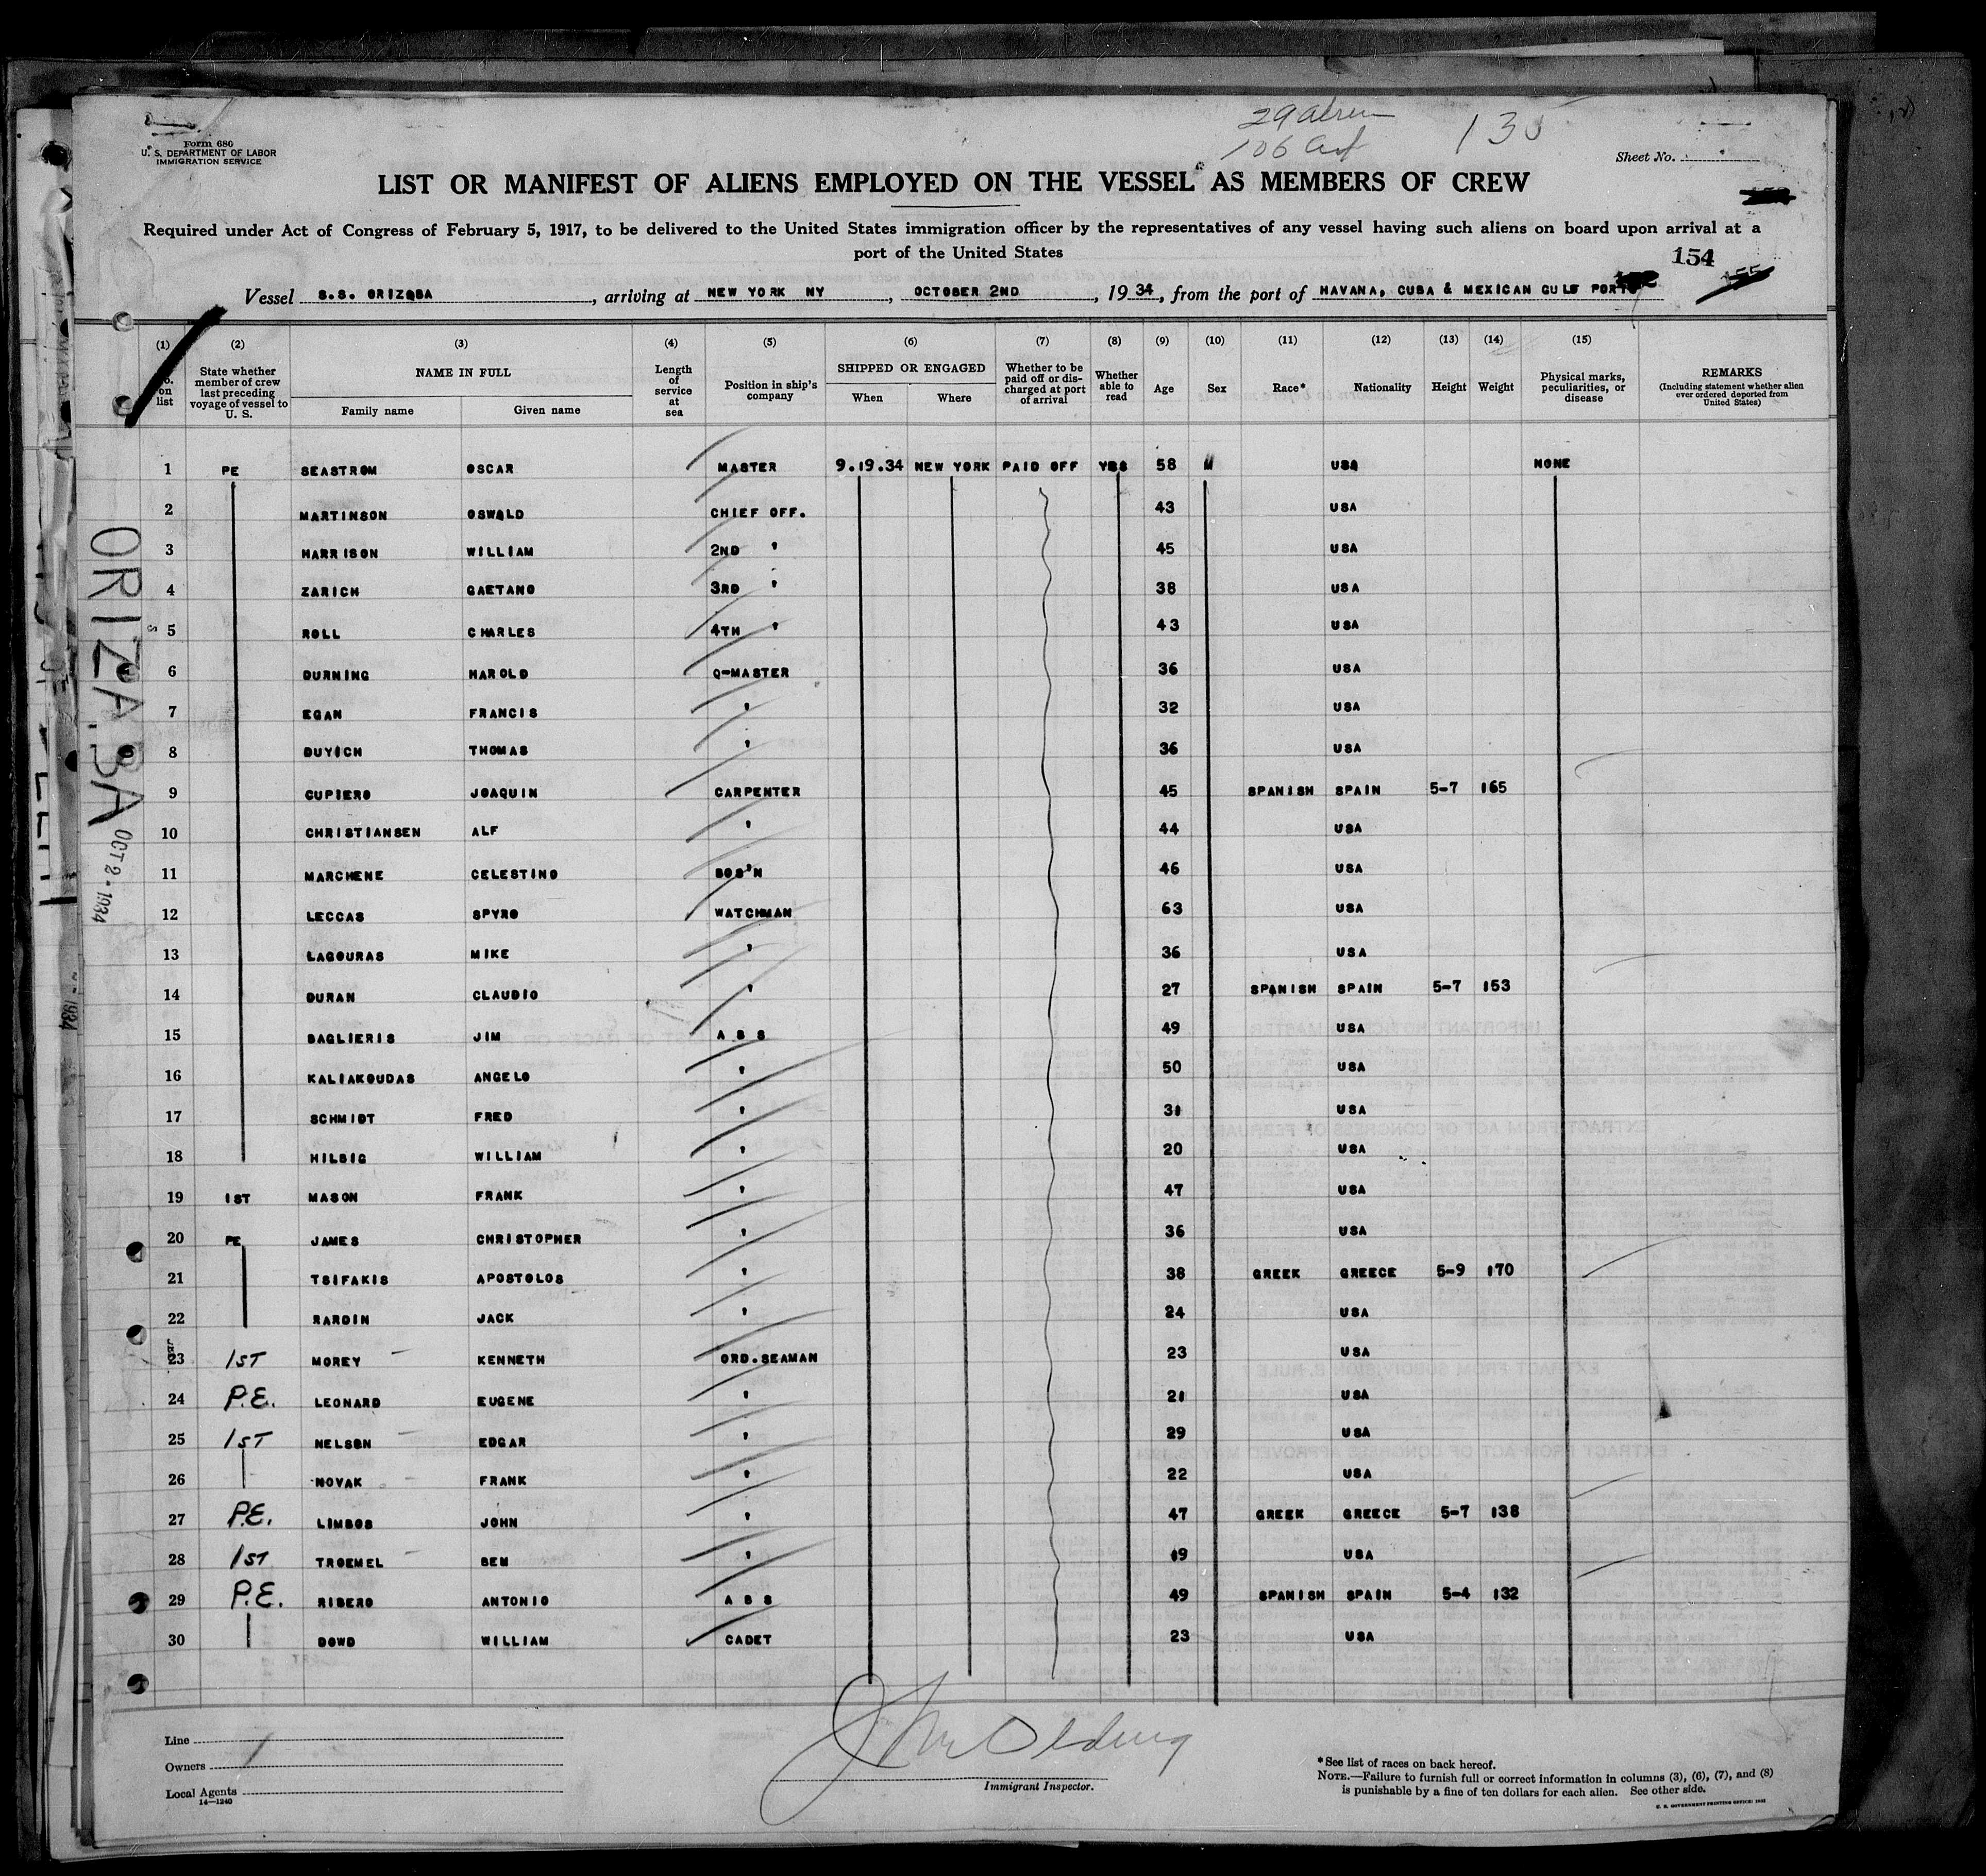 29 alien
106 cit
135
Form 680
U. S. DEPARTMENT OF LABOR
IMMIGRATION SERVICE
Sheet No.
LIST OR MANIFEST OF ALIENS EMPLOYED ON THE VESSEL AS MEMBERS OF CREW
Required under Act of Congress of February 5, 1917, to be delivered to the United States immigration officer by the representatives of any vessel having such aliens on board upon arrival at a
port of the United States
154
155
Vessel S.S. ORIZABA, arriving at NEW YORK NY, OCTOBER 2ND, 1934, from the port of HAVANA, CUBA & MEXICAN GULF PORTS
(1) (2) (3) (4) (5) (6) (7) (8) (9) (10) (11) (12) (13) (14) (15)
No. on list
State whether member of crew last preceding voyage of vessel to U. S.
NAME IN FULL
Family name Given name
Length of service at sea
Position in ship's company
SHIPPED OR ENGAGED
When Where
Whether to be paid off or discharged at port of arrival
Whether able to read
Age Sex Race* Nationality Height Weight
Physical marks, peculiarities, or disease
REMARKS
(Including statement whether alien ever ordered deported from United States)
1 PE SEASTROM OSCAR MASTER 9.19.34 NEW YORK PAID OFF YES 58 M USA NONE
2 MARTINSON OSWALD CHIEF OFF. 43 USA
3 HARRISON WILLIAM 2ND " 45 USA
4 ZARICH GAETANO 3RD " 38 USA
5 ROLL CHARLES 4TH " 43 USA
6 DURNING HAROLD Q-MASTER 36 USA
7 EGAN FRANCIS " 32 USA
8 DUYICH THOMAS " 36 USA
9 CUPIERO JOAQUIN CARPENTER 45 SPANISH SPAIN 5-7 165
10 CHRISTIANSEN ALF " 44 USA
11 MARCHENE CELESTINO BOS'N 46 USA
12 LECCAS SPYRO WATCHMAN 63 USA
13 LAGOURAS MIKE " 36 USA
14 DURAN CLAUDIO " 27 SPANISH SPAIN 5-7 153
15 BAGLIERIS JIM A B S 49 USA
16 KALIAKOUDAS ANGELO " 50 USA
17 SCHMIDT FRED " 31 USA
18 HILBIG WILLIAM " 20 USA
19 1ST MASON FRANK " 47 USA
20 PE JAMES CHRISTOPHER " 36 USA
21 TSIFAKIS APOSTOLOS " 38 GREEK GREECE 5-9 170
22 RARDIN JACK " 24 USA
23 1ST MOREY KENNETH ORD.SEAMAN 23 USA
24 P.E. LEONARD EUGENE " 21 USA
25 1ST NELSON EDGAR " 29 USA
26 NOVAK FRANK " 22 USA
27 P.E. LIMBOS JOHN " 47 GREEK GREECE 5-7 138
28 1ST TROEMEL BEN " 19 USA
29 P.E. RIBERO ANTONIO A B S 49 SPANISH SPAIN 5-4 132
30 DOWD WILLIAM CADET 23 USA
ORIZABA
OCT 2 - 1934
Line
Owners
Local Agents
14—1240
Immigrant Inspector.
*See list of races on back hereof.
NOTE.—Failure to furnish full or correct information in columns (3), (6), (7), and (8)
is punishable by a fine of ten dollars for each alien. See other side.
U. S. GOVERNMENT PRINTING OFFICE: 1932